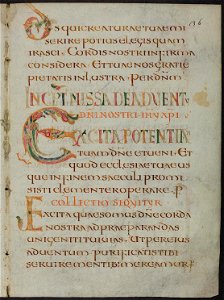 136
OS QUI CREATURAE TUAE M
SERIRE POTIUS ELEGIS QUAM
IRASCI. CORDIS NOSTRI INFIRMA
CONSIDERA. ET TUAE NOS GRATIAE
PIETATIS INLUSTRA. PER DNM
INCP MISSA DE ADVENT
DNI NOSTRI IHV XPI
EXCITA POTENTIA
TUAM DNE ET UENI. ET
QUOD ECCLESIAE TUAE US
QUE IN FINEM SAECULI PROMI
SISTI CLEMENTER OPERARE. P
COLLECTIO SEQUITUR
EXCITA QUAESUMUS DNE CORDA
NOSTRA AD PRAEPARANDAS
UNIGENITI TUI UIAS. UT PER EIUS
ADUENTUM PURIFICATIS TIBI
SERUIRE MENTIBUS MEREAMUR P